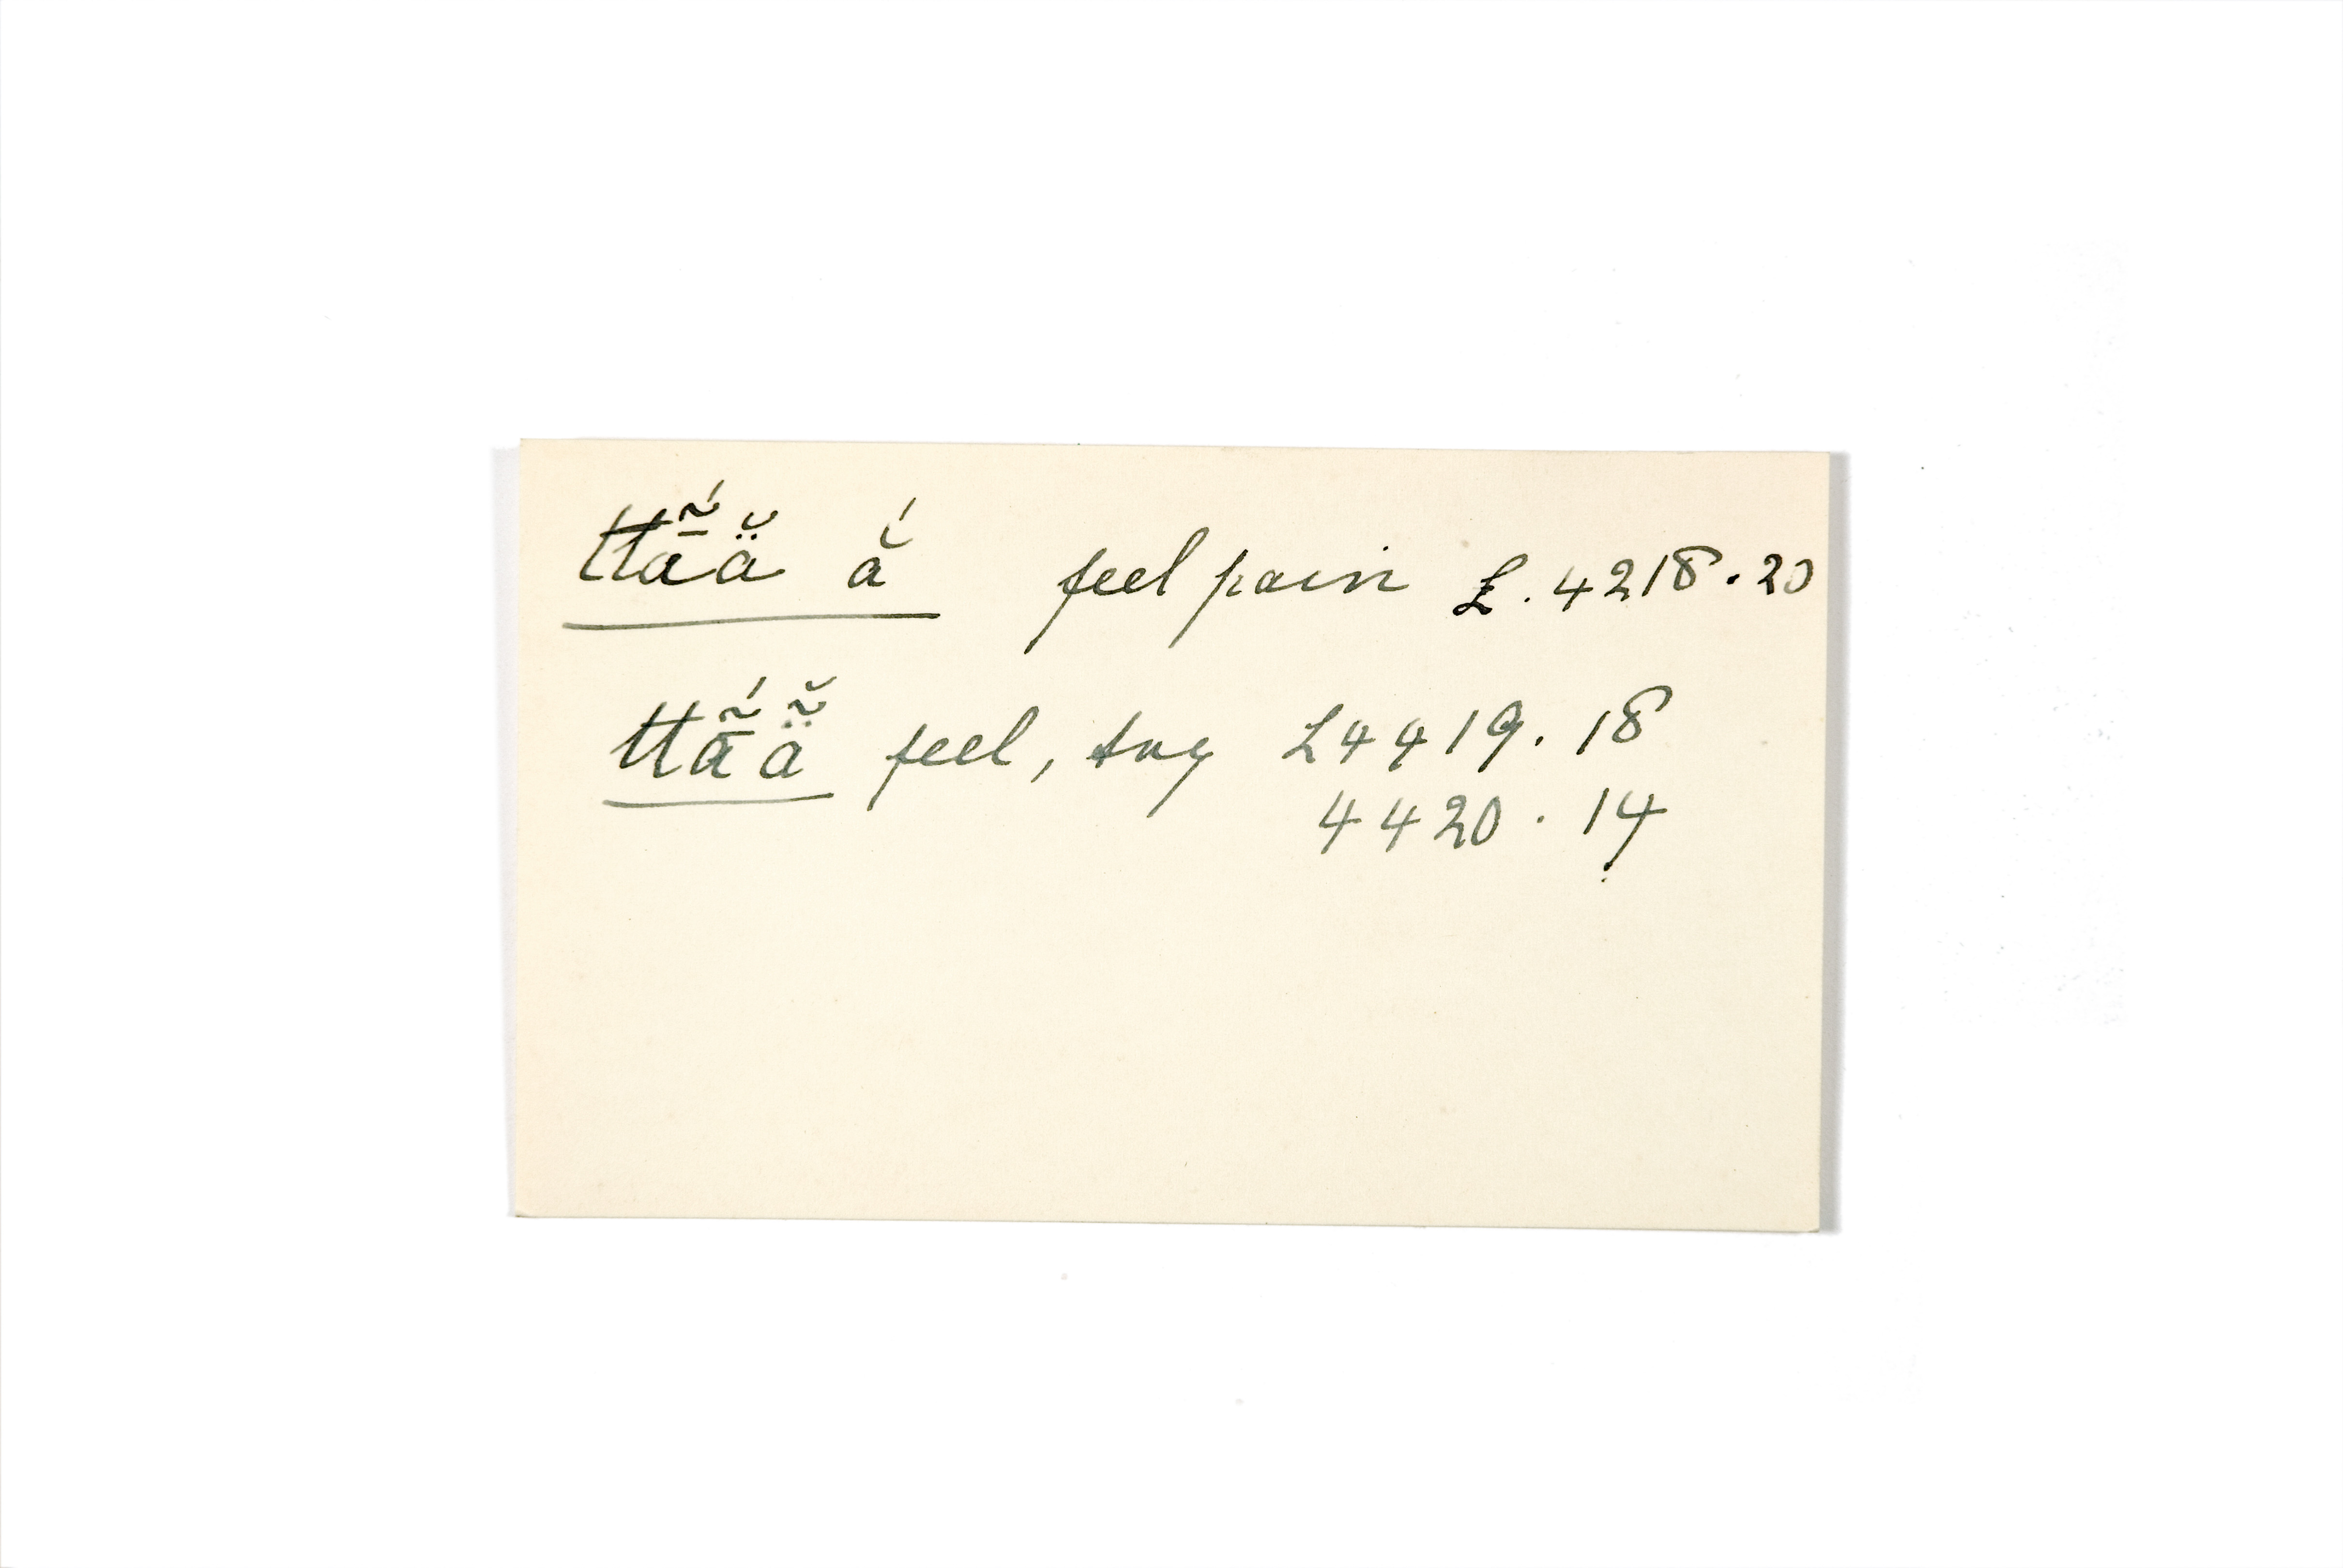 ttā̰́ä̆ ắ feel pain L. 4218.20
ttā̰́ä̰̆ feel, L4419.18
4420.14